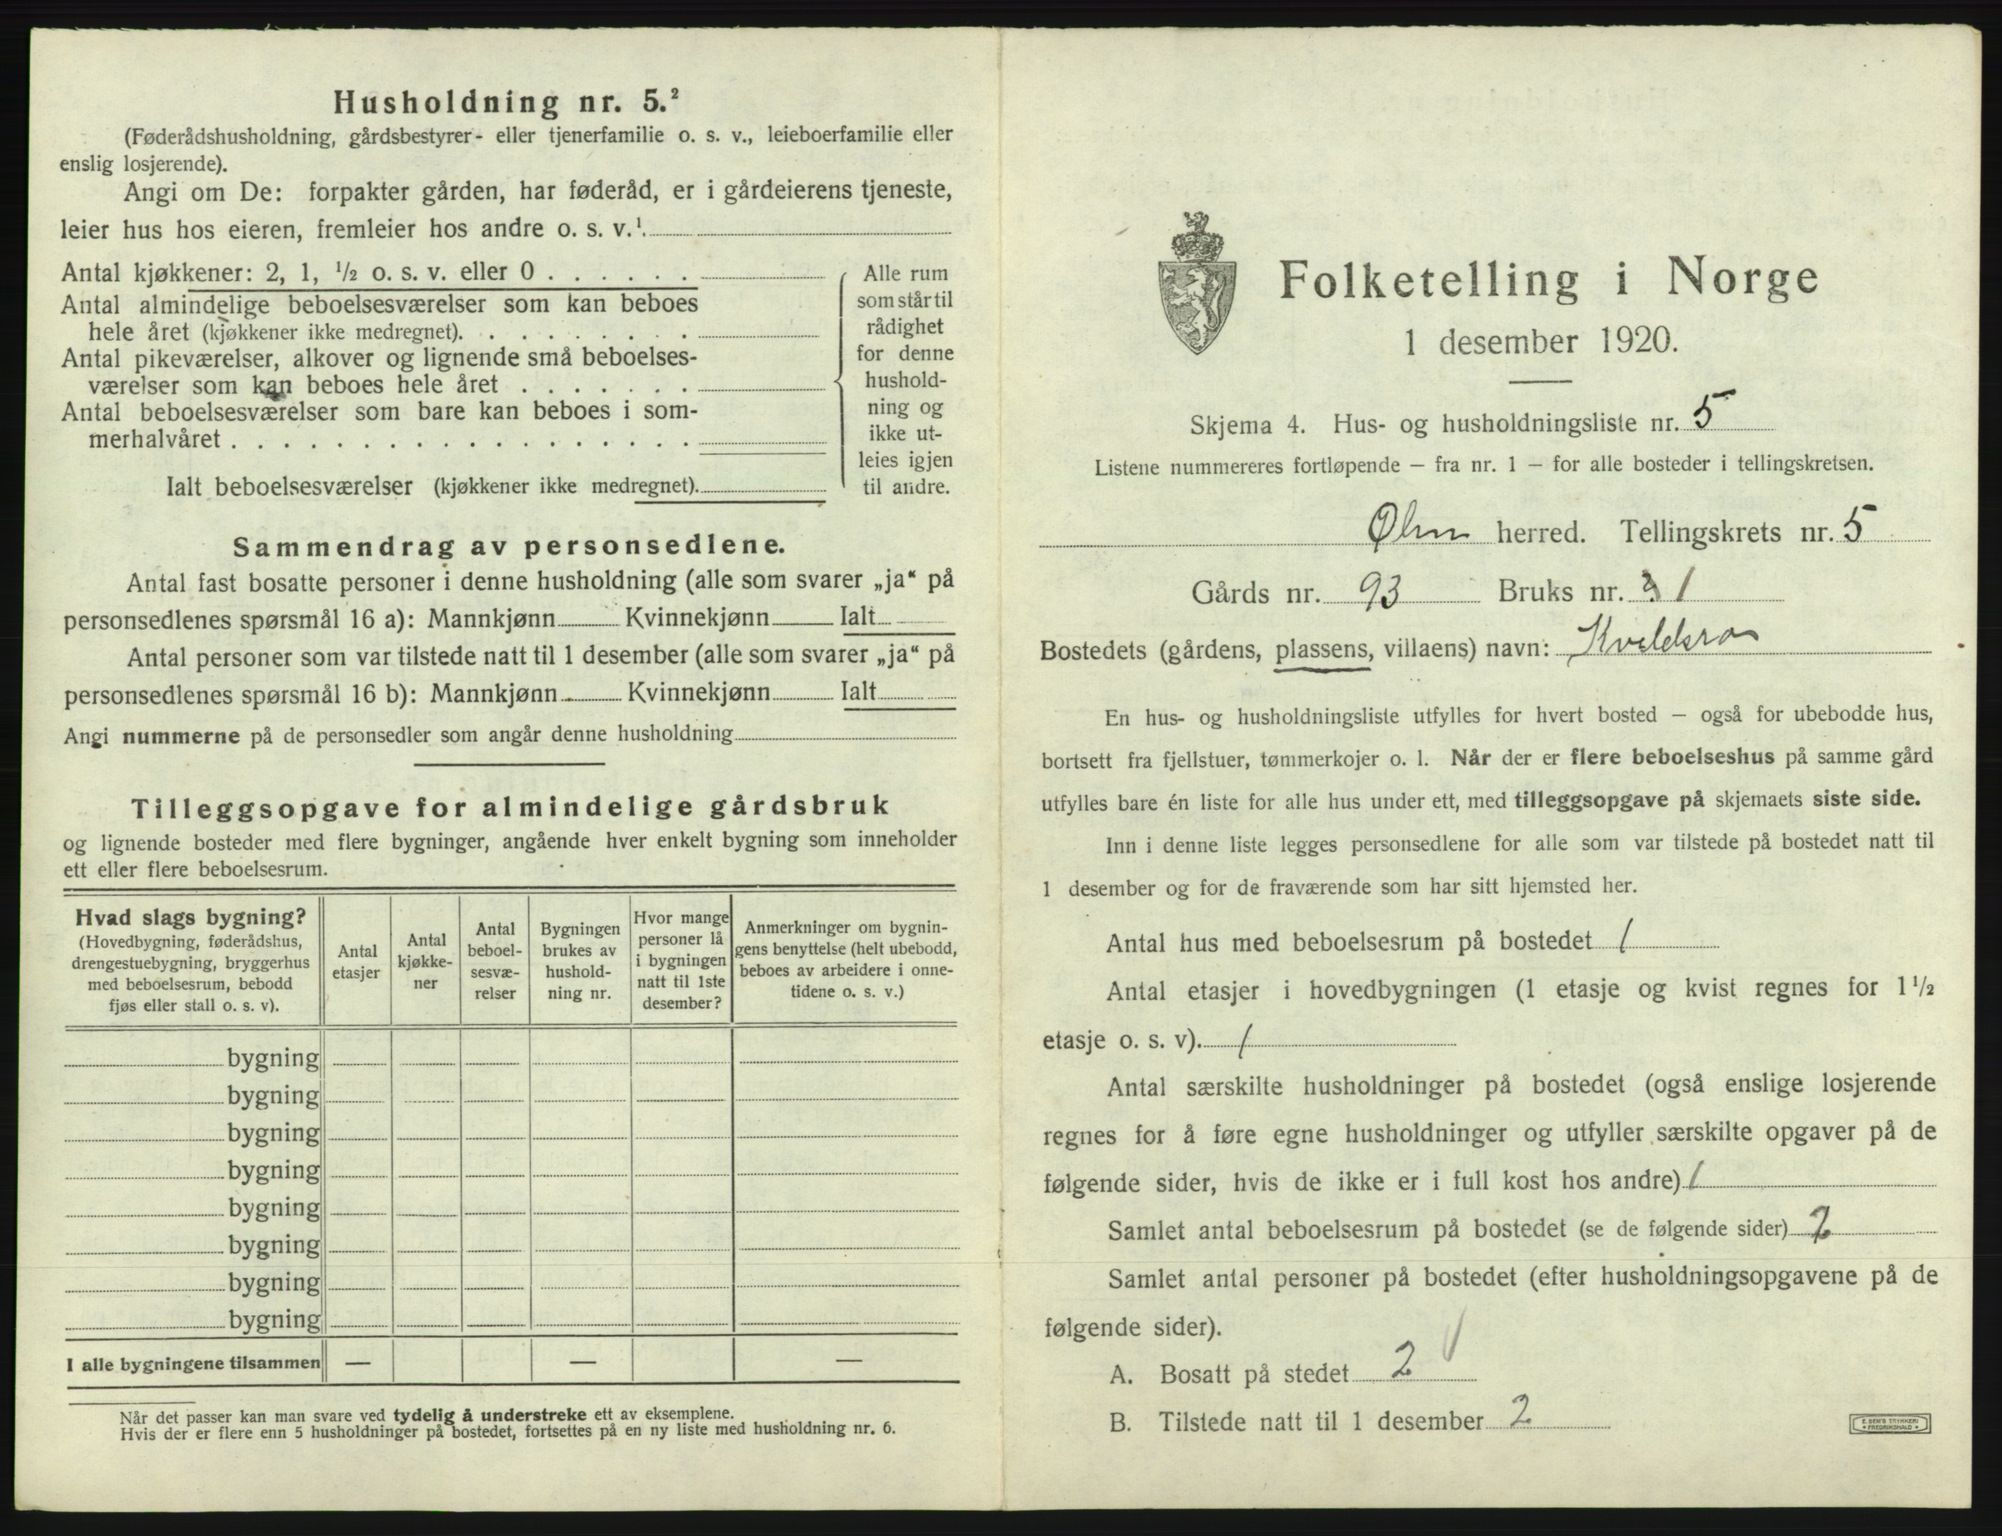 Husholdning nr. 5.²
(Føderådshusholdning, gårdsbestyrer- eller tjenerfamilie o. s. v., leieboerfamilie eller
enslig losjerende).
Angi om De: forpakter gården, har føderåd, er i gårdeierens tjeneste,
leier hus hos eieren, fremleier hos andre o. s. v.¹
Antal kjøkkener: 2, 1, ½ o. s. v. eller 0 . . . . . .
Antal almindelige beboelsesværelser som kan beboes
hele året (kjøkkener ikke medregnet). . . . . . . .
Antal pikeværelser, alkover og lignende små beboelses-
værelser som kan beboes hele året . . . . . . .
Antal beboelsesværelser som bare kan beboes i som-
merhalvåret . . . . . . . . . . . . . . . . . .
Ialt beboelsesværelser (kjøkkener ikke medregnet).
Alle rum
som står til
rådighet
for denne
hushold-
ning og
ikke ut-
leies igjen
til andre.
Sammendrag av personsedlene.
Antal fast bosatte personer i denne husholdning (alle som svarer „ja“ på
personsedlenes spørsmål 16 a): Mannkjønn Kvinnekjønn Ialt
Antal personer som var tilstede natt til 1 desember (alle som svarer „ja“ på
personsedlenes spørsmål 16 b): Mannkjønn Kvinnekjønn Ialt
Angi nummerne på de personsedler som angår denne husholdning
Tilleggsopgave for almindelige gårdsbruk
og lignende bosteder med flere bygninger, angående hver enkelt bygning som inneholder
ett eller flere beboelsesrum.
Hvad slags bygning?
(Hovedbygning, føderådshus,
drengestuebygning, bryggerhus
med beboelsesrum, bebodd
fjøs eller stall o. s. v).
Antal
etasjer
Antal
kjøkke-
ner
Antal
beboel-
sesvæ-
relser
Bygningen
brukes av
hushold-
ning nr.
Hvor mange
personer lå
i bygningen
natt til 1ste
desember?
Anmerkninger om bygnin-
gens benyttelse (helt ubebodd,
beboes av arbeidere i onne-
tidene o. s. v.)
bygning
bygning
bygning
bygning
bygning
bygning
bygning
bygning
I alle bygningene tilsammen — — —
Når det passer kan man svare ved tydelig å understreke ett av eksemplene.
Hvis der er flere enn 5 husholdninger på bostedet, fortsettes på en ny liste med husholdning nr. 6.
Folketelling i Norge
1 desember 1920.
Skjema 4. Hus- og husholdningsliste nr. 5
Listene nummereres fortløpende — fra nr. 1 — for alle bosteder i tellingskretsen.
herred. Tellingskrets nr. 5
Gårds nr. 93 Bruks nr. 1
Bostedets (gårdens, plassens, villaens) navn:
En hus- og husholdningsliste utfylles for hvert bosted — også for ubebodde hus,
bortsett fra fjellstuer, tømmerkojer o. l. Når der er flere beboelseshus på samme gård
utfylles bare én liste for alle hus under ett, med tilleggsopgave på skjemaets siste side.
Inn i denne liste legges personsedlene for alle som var tilstede på bostedet natt til
1 desember og for de fraværende som har sitt hjemsted her.
Antal hus med beboelsesrum på bostedet 1
Antal etasjer i hovedbygningen (1 etasje og kvist regnes for 1½
etasje o. s. v). 1
Antal særskilte husholdninger på bostedet (også enslige losjerende
regnes for å føre egne husholdninger og utfyller særskilte opgaver på de
følgende sider, hvis de ikke er i full kost hos andre) 1
Samlet antal beboelsesrum på bostedet (se de følgende sider) 2
Samlet antal personer på bostedet (efter husholdningsopgavene på de
følgende sider).
A. Bosatt på stedet 2
B. Tilstede natt til 1 desember 2